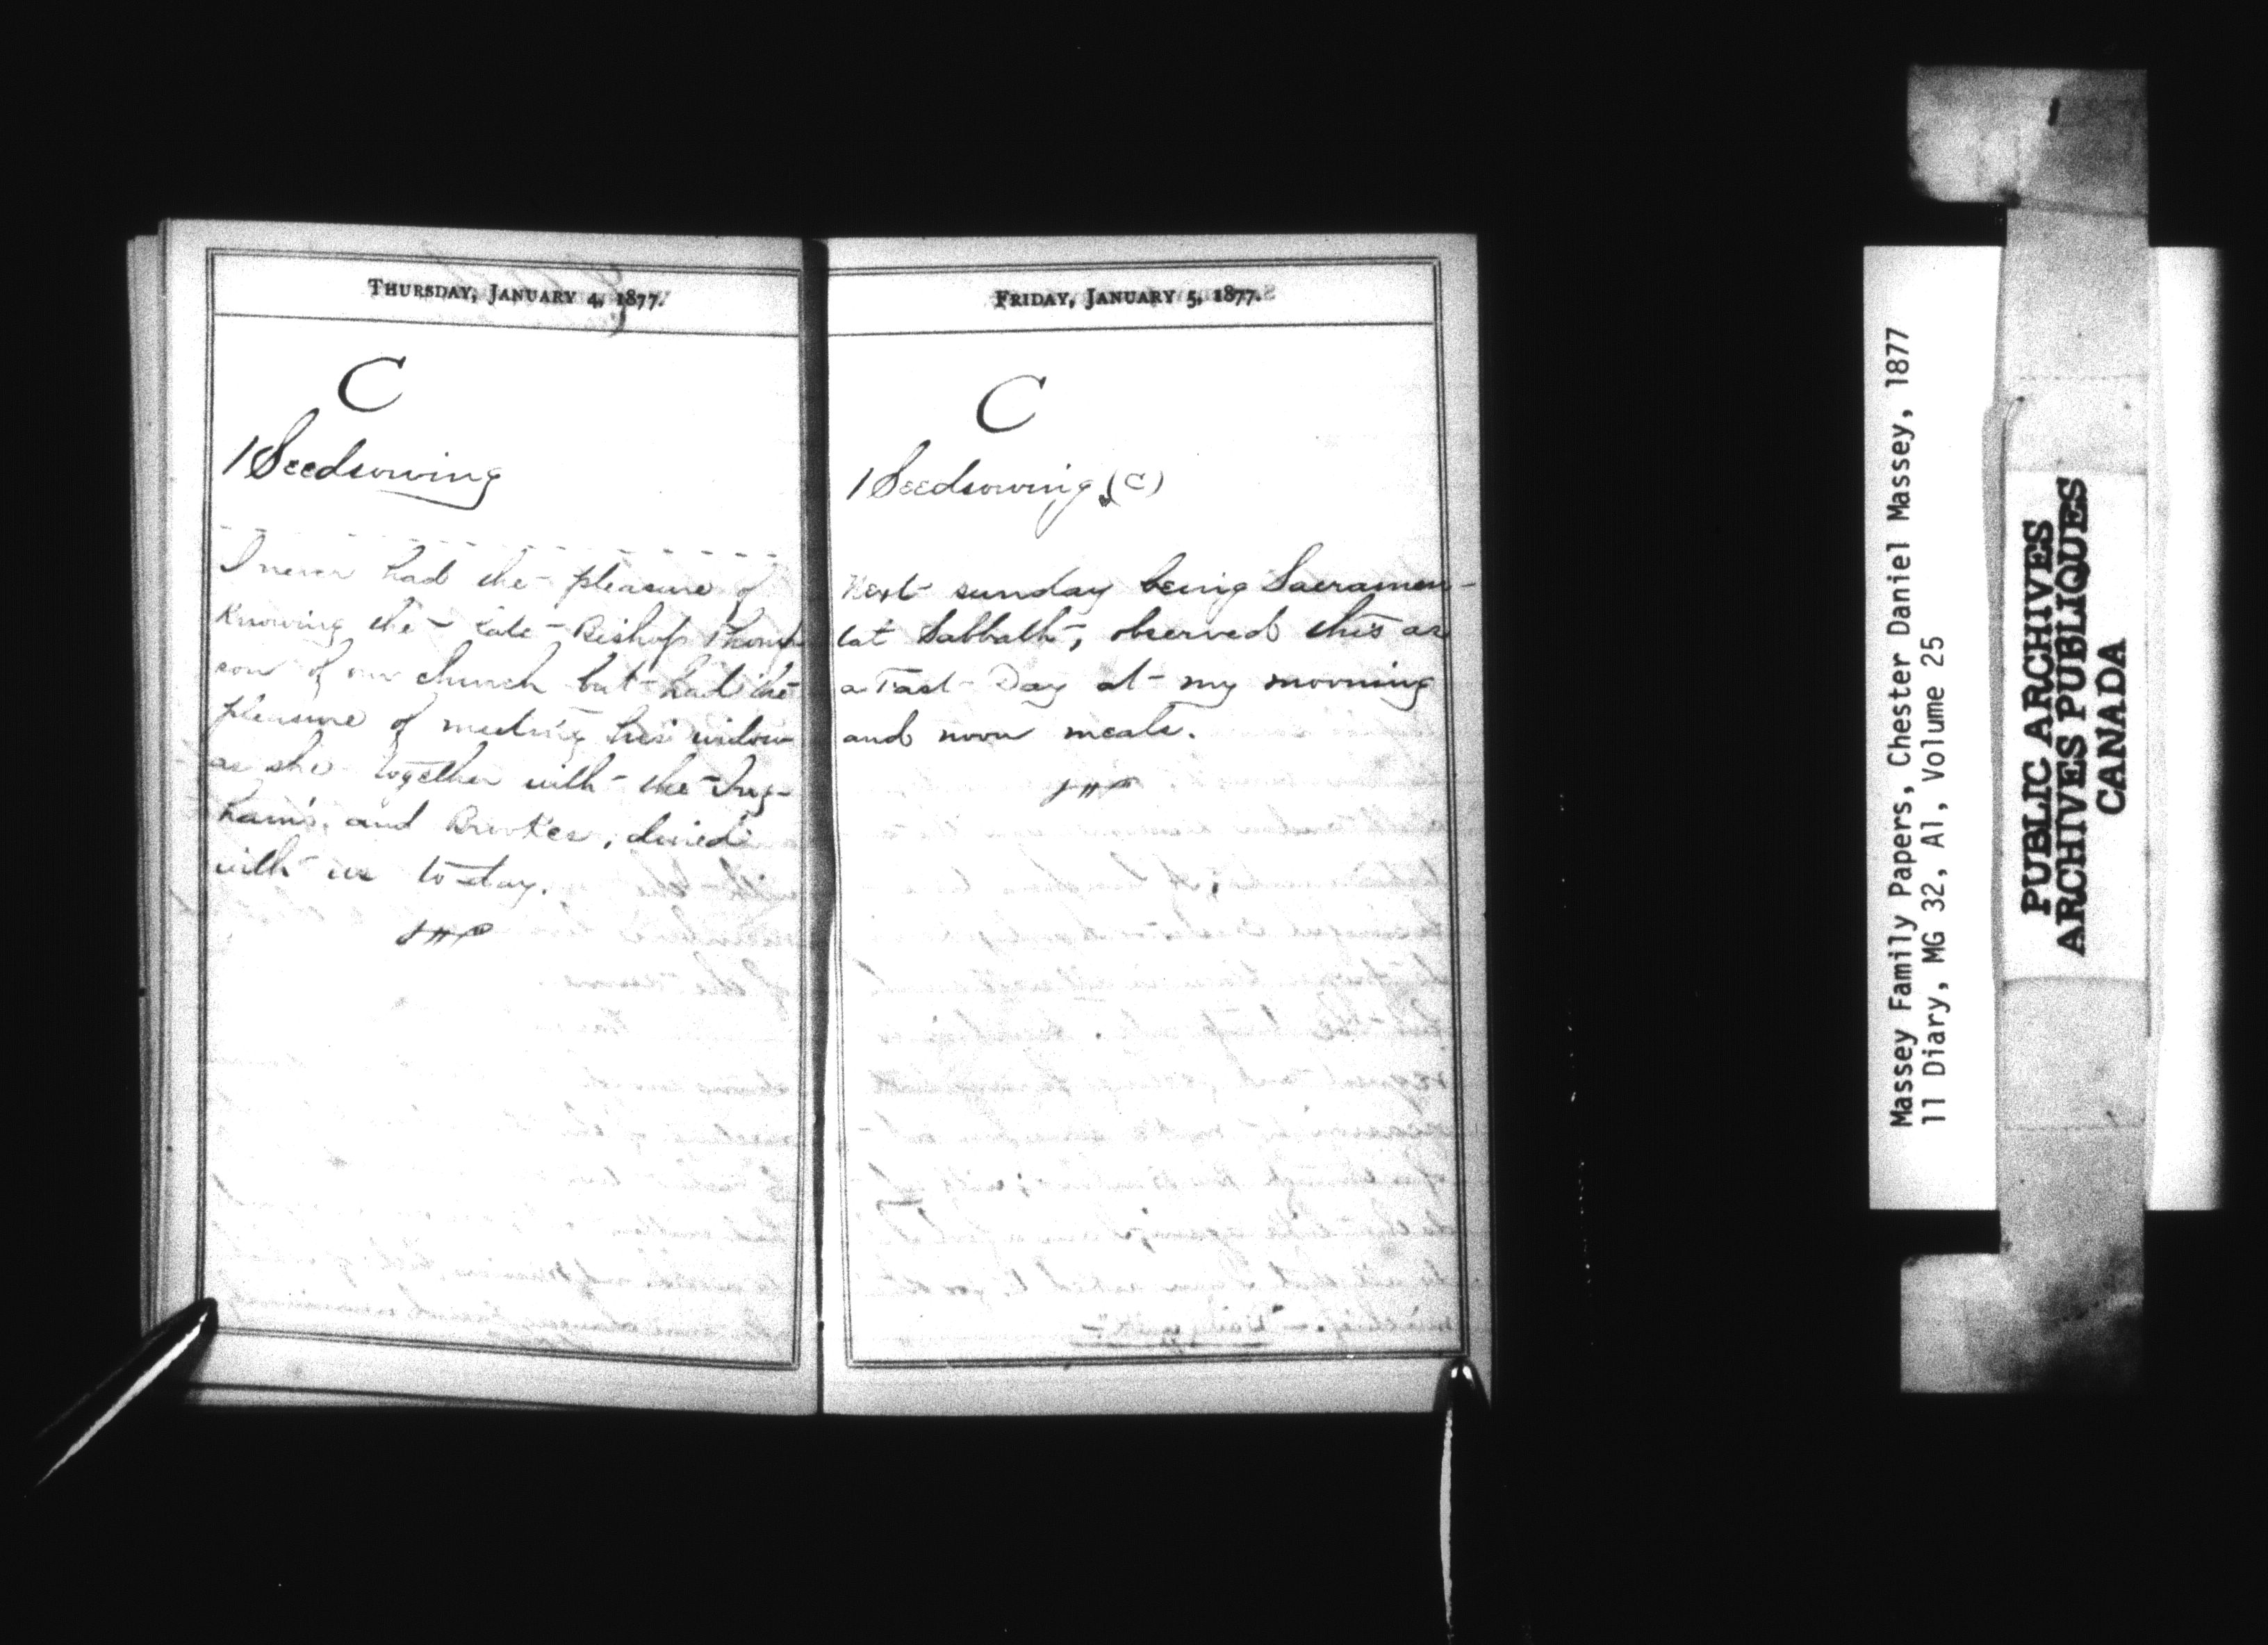 THURSDAY, JANUARY 4, 1877.
C
1 Seedsowing
I never had the pleasure of
knowing the late Bishop Thomp
son of our church but had the
pleasure of meeting his widow
as she together with the Ing-
ham's, and Brookes, dined
with us to-day.
FRIDAY, JANUARY 5, 1877.
C
1 Seedsowing (C)
Next sunday being Sacramen-
tal Sabbath, observed this as
a Fast Day at my morning
and noon meals.
Massey Family Papers, Chester Daniel Massey, 1877
11 Diary, MG 32, A1, Volume 25
PUBLIC ARCHIVES
ARCHIVES PUBLIQUES
CANADA